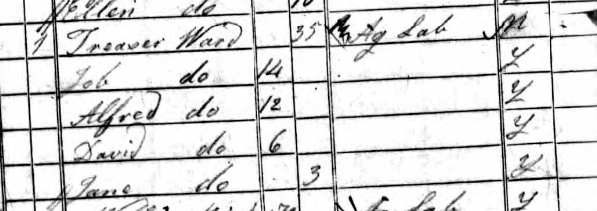 Ellen do
1 Treaser Ward 35 Ag Lab N
Job do 14 Y
Alfred do 12 Y
David do 6 Y
Jane do 3 Y
Lab Y